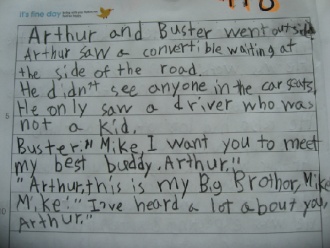 it's fine day
Arthur and Buster went outside
Arthur saw a convertible waiting at
the side of the road.
He didn't see anyone in the car seats,
He only saw a driver who was
5
not a kid.
Buster:"Mike, I want you to meet
my best buddy. Arthur,"
"Arthur, this is my Big Brother, Mike
Mike:" I've heard a lot about you,
Arthur."